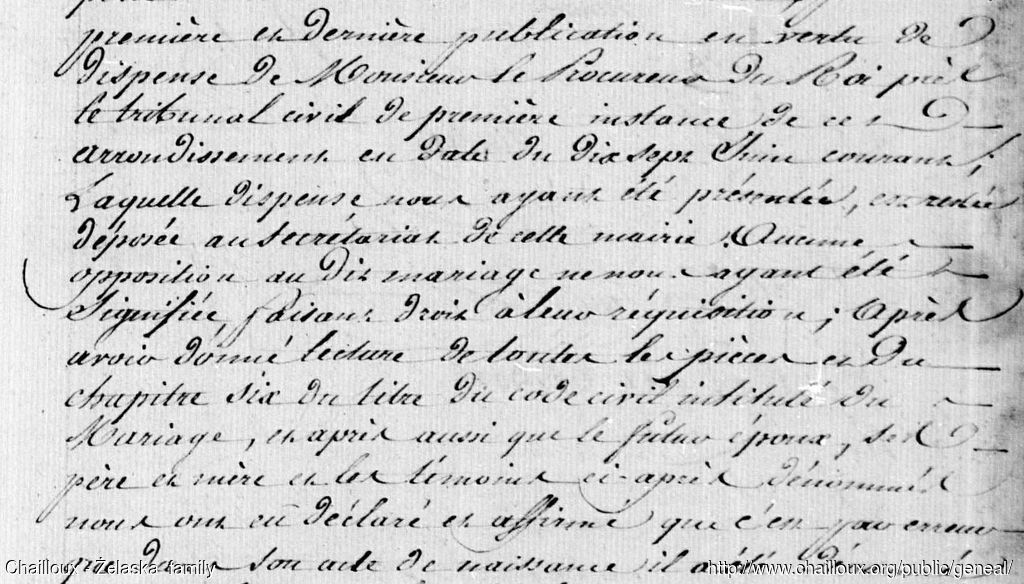 première et dernière publication en vertu de
dispense de Monsieur le Procureur du Roi près
le tribunal civil de première instance de cet
arrondissement en date du dix sept Juin courant,
Laquelle dispense nous ayant été présentée, est restée
déposée au secrétariat de cette mairie. Aucune
opposition au dit mariage ne nous ayant été
Signifiée, faisant droit à leur réquisition ; Après
avoir donné lecture de toutes les pièces et du
chapitre six du titre du code civil intitulé du
Mariage, et après aussi que le futur époux, ses
père et mère et les témoins ci-après dénommés
nous ont eu déclaré et affirmé que c'est par erreur
que dans son acte de naissance il a été
Chailloux - Żelaska family
http://www.chailloux.org/public/geneal/